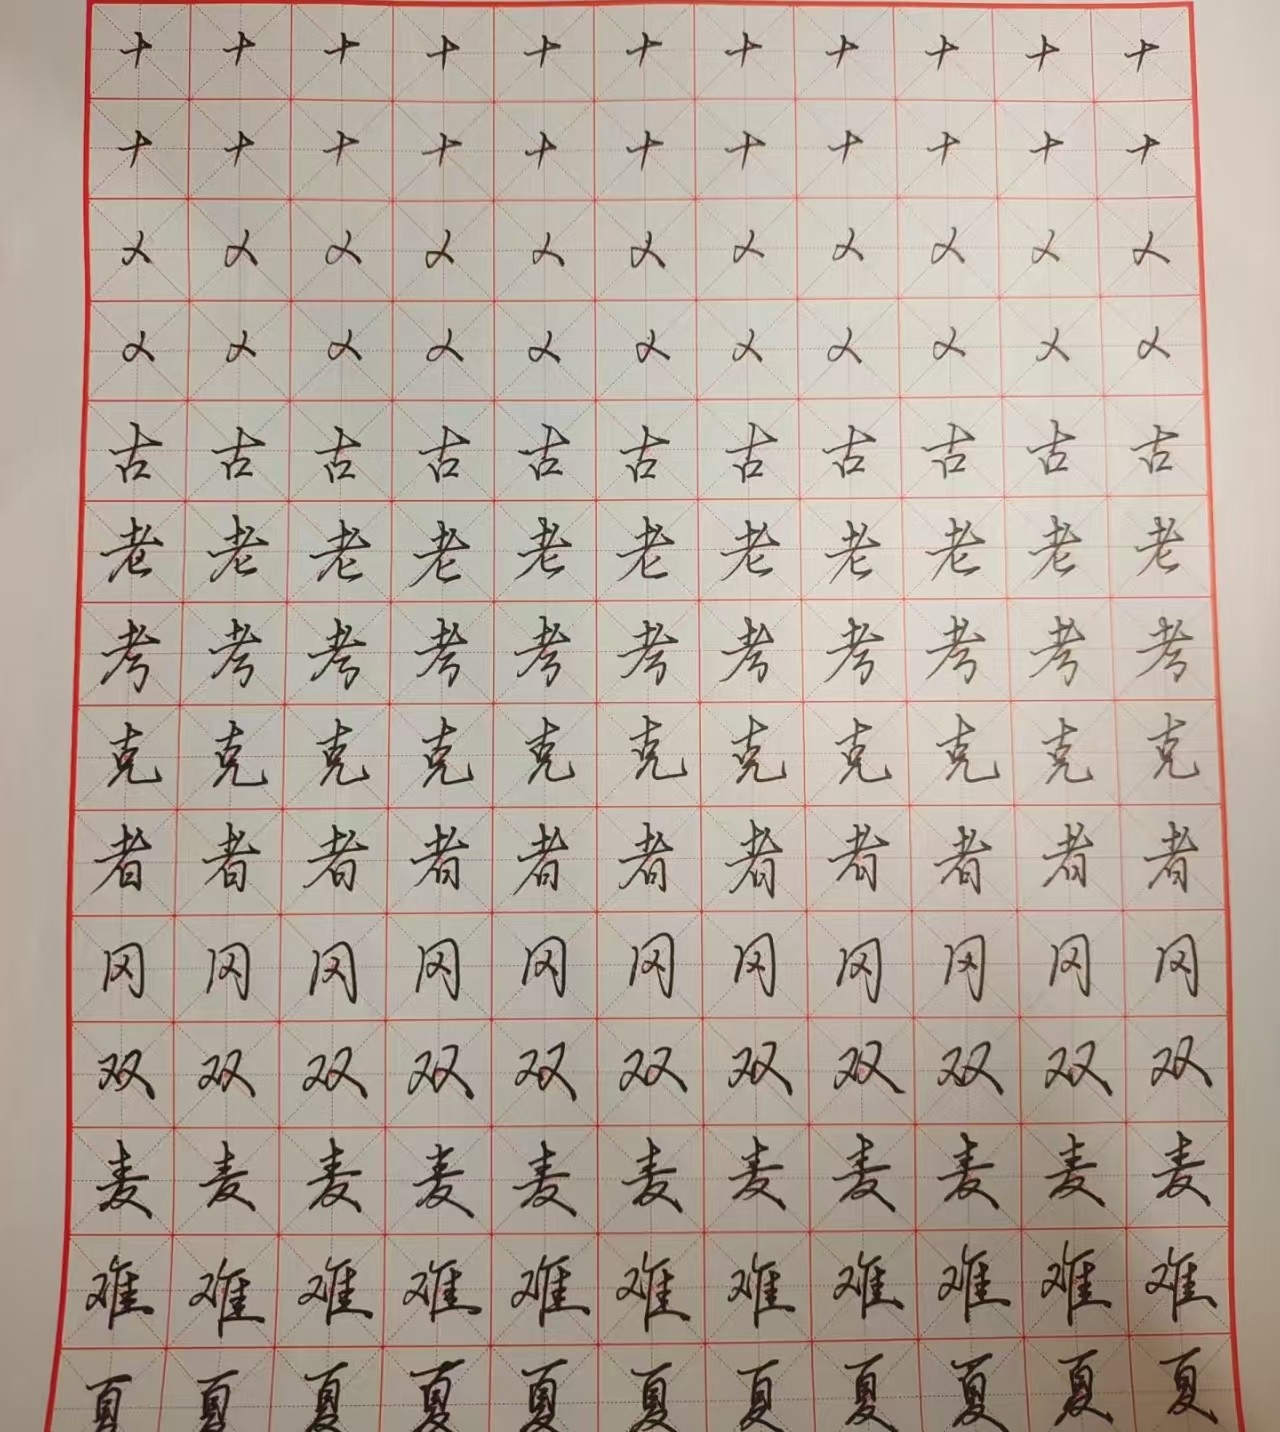 十十十十十十十十十十十
十十十十十十十十十十十
乂乂乂乂乂乂乂乂乂乂乂
乂乂乂乂乂乂乂乂乂乂乂
古古古古古古古古古古古
老老老老老老老老老老老
考考考考考考考考考考考
克克克克克克克克克克克
者者者者者者者者者者者
冈冈冈冈冈冈冈冈冈冈冈
双双双双双双双双双双双
麦麦麦麦麦麦麦麦麦麦麦
难难难难难难难难难难难
夏夏夏夏夏夏夏夏夏夏夏